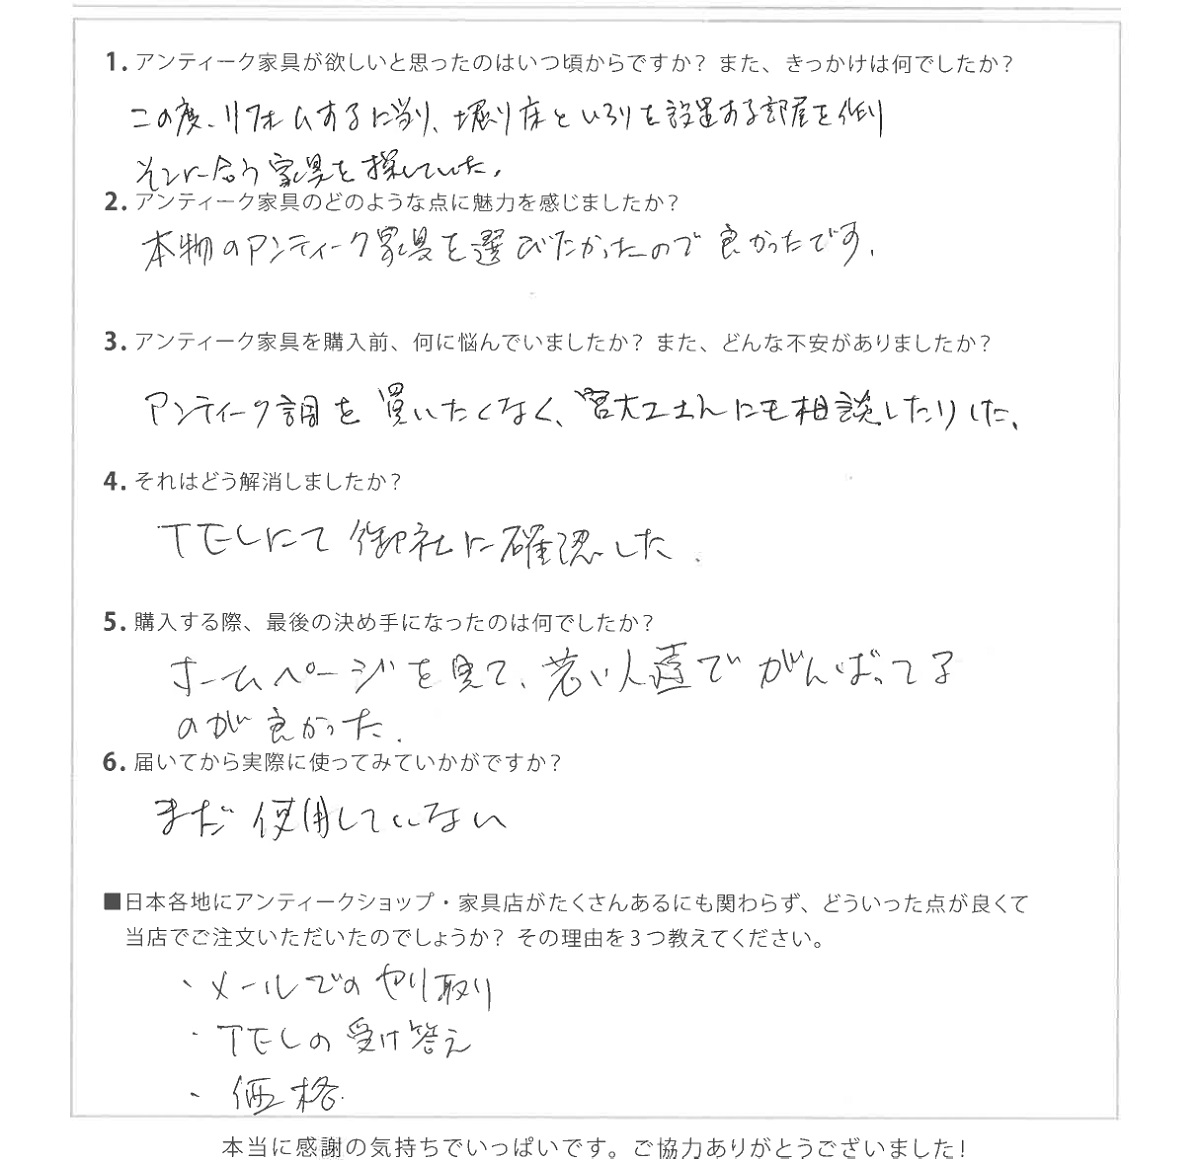 1. アンティーク家具が欲しいと思ったのはいつ頃からですか？ また、きっかけは何でしたか？
この度、リフォームするに当り、堀り床といろりを設置する部屋を作り
そこに合う家具を探していた。
2. アンティーク家具のどのような点に魅力を感じましたか？
本物のアンティーク家具を選びたかったので良かったです。
3. アンティーク家具を購入前、何に悩んでいましたか？ また、どんな不安がありましたか？
アンティーク調を買いたくなく、宮大工さんにも相談したりした。
4. それはどう解消しましたか？
TELにて御社に確認した。
5. 購入する際、最後の決め手になったのは何でしたか？
ホームページを見て、若い人達でがんばってる
のが良かった。
6. 届いてから実際に使ってみていかがですか？
まだ使用していない
■日本各地にアンティークショップ・家具店がたくさんあるにも関わらず、どういった点が良くて
当店でご注文いただいたのでしょうか？ その理由を3つ教えてください。
・メールでのやり取り
・TELの受け答え
・価格
本当に感謝の気持ちでいっぱいです。ご協力ありがとうございました！